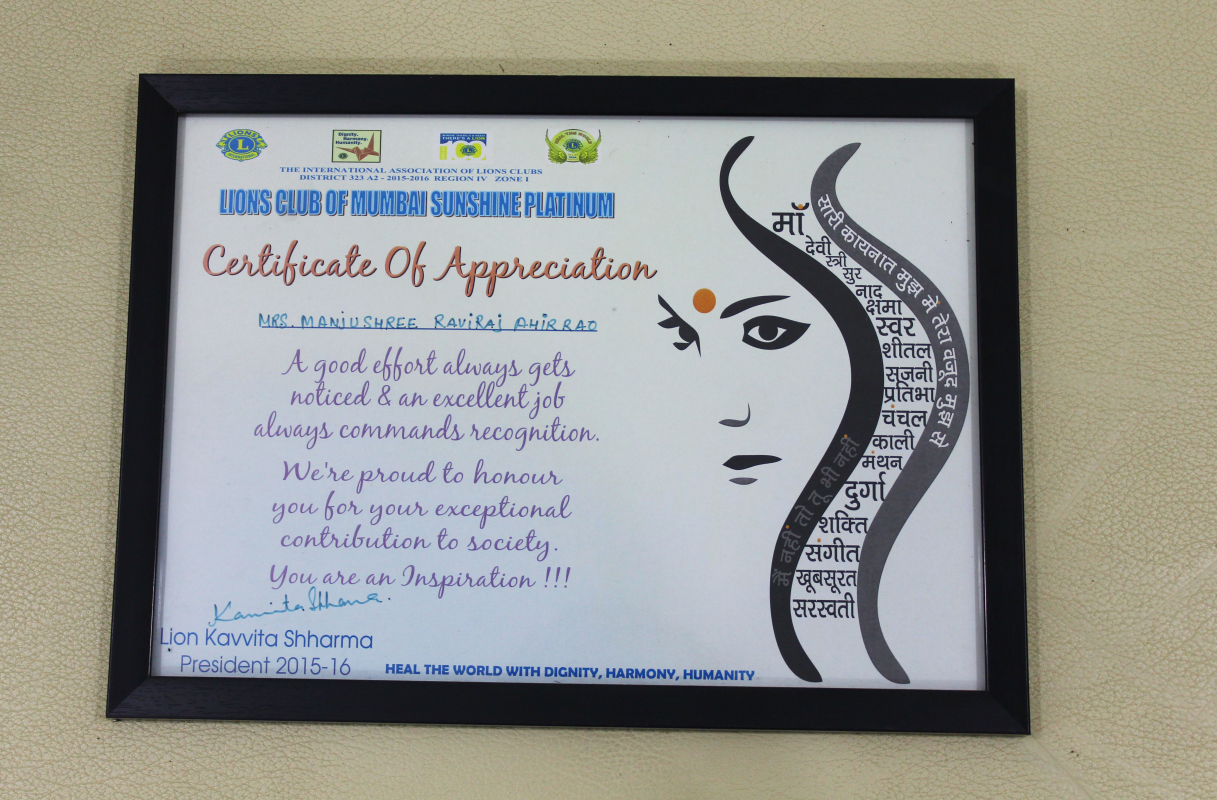 LIONS
L
INTERNATIONAL
Dignity.
Harmony.
Humanity.
THERE'S A LION
THE INTERNATIONAL ASSOCIATION OF LIONS CLUBS
DISTRICT 323 A2 - 2015-2016 REGION IV ZONE I
LIONS CLUB OF MUMBAI SUNSHINE PLATINUM
Certificate Of Appreciation
MRS. MANJUSHREE RAVIRAJ AHIRRAO
A good effort always gets
noticed & an excellent job
always commands recognition.
We're proud to honour
you for your exceptional
contribution to society.
You are an Inspiration !!!
Kavvita Shharma
Lion Kavvita Shharma
President 2015-16
HEAL THE WORLD WITH DIGNITY, HARMONY, HUMANITY
माँ
देवी
स्त्री
सुर
नाद
क्षमा
स्वर
शीतल
सृजनी
प्रतिभा
चंचल
काली
मंथन
दुर्गा
शक्ति
संगीत
खूबसूरत
सरस्वती
सारी कायनात मुझ में तेरा वजूद मुझ से
मैं नहीं तो तू भी नहीं